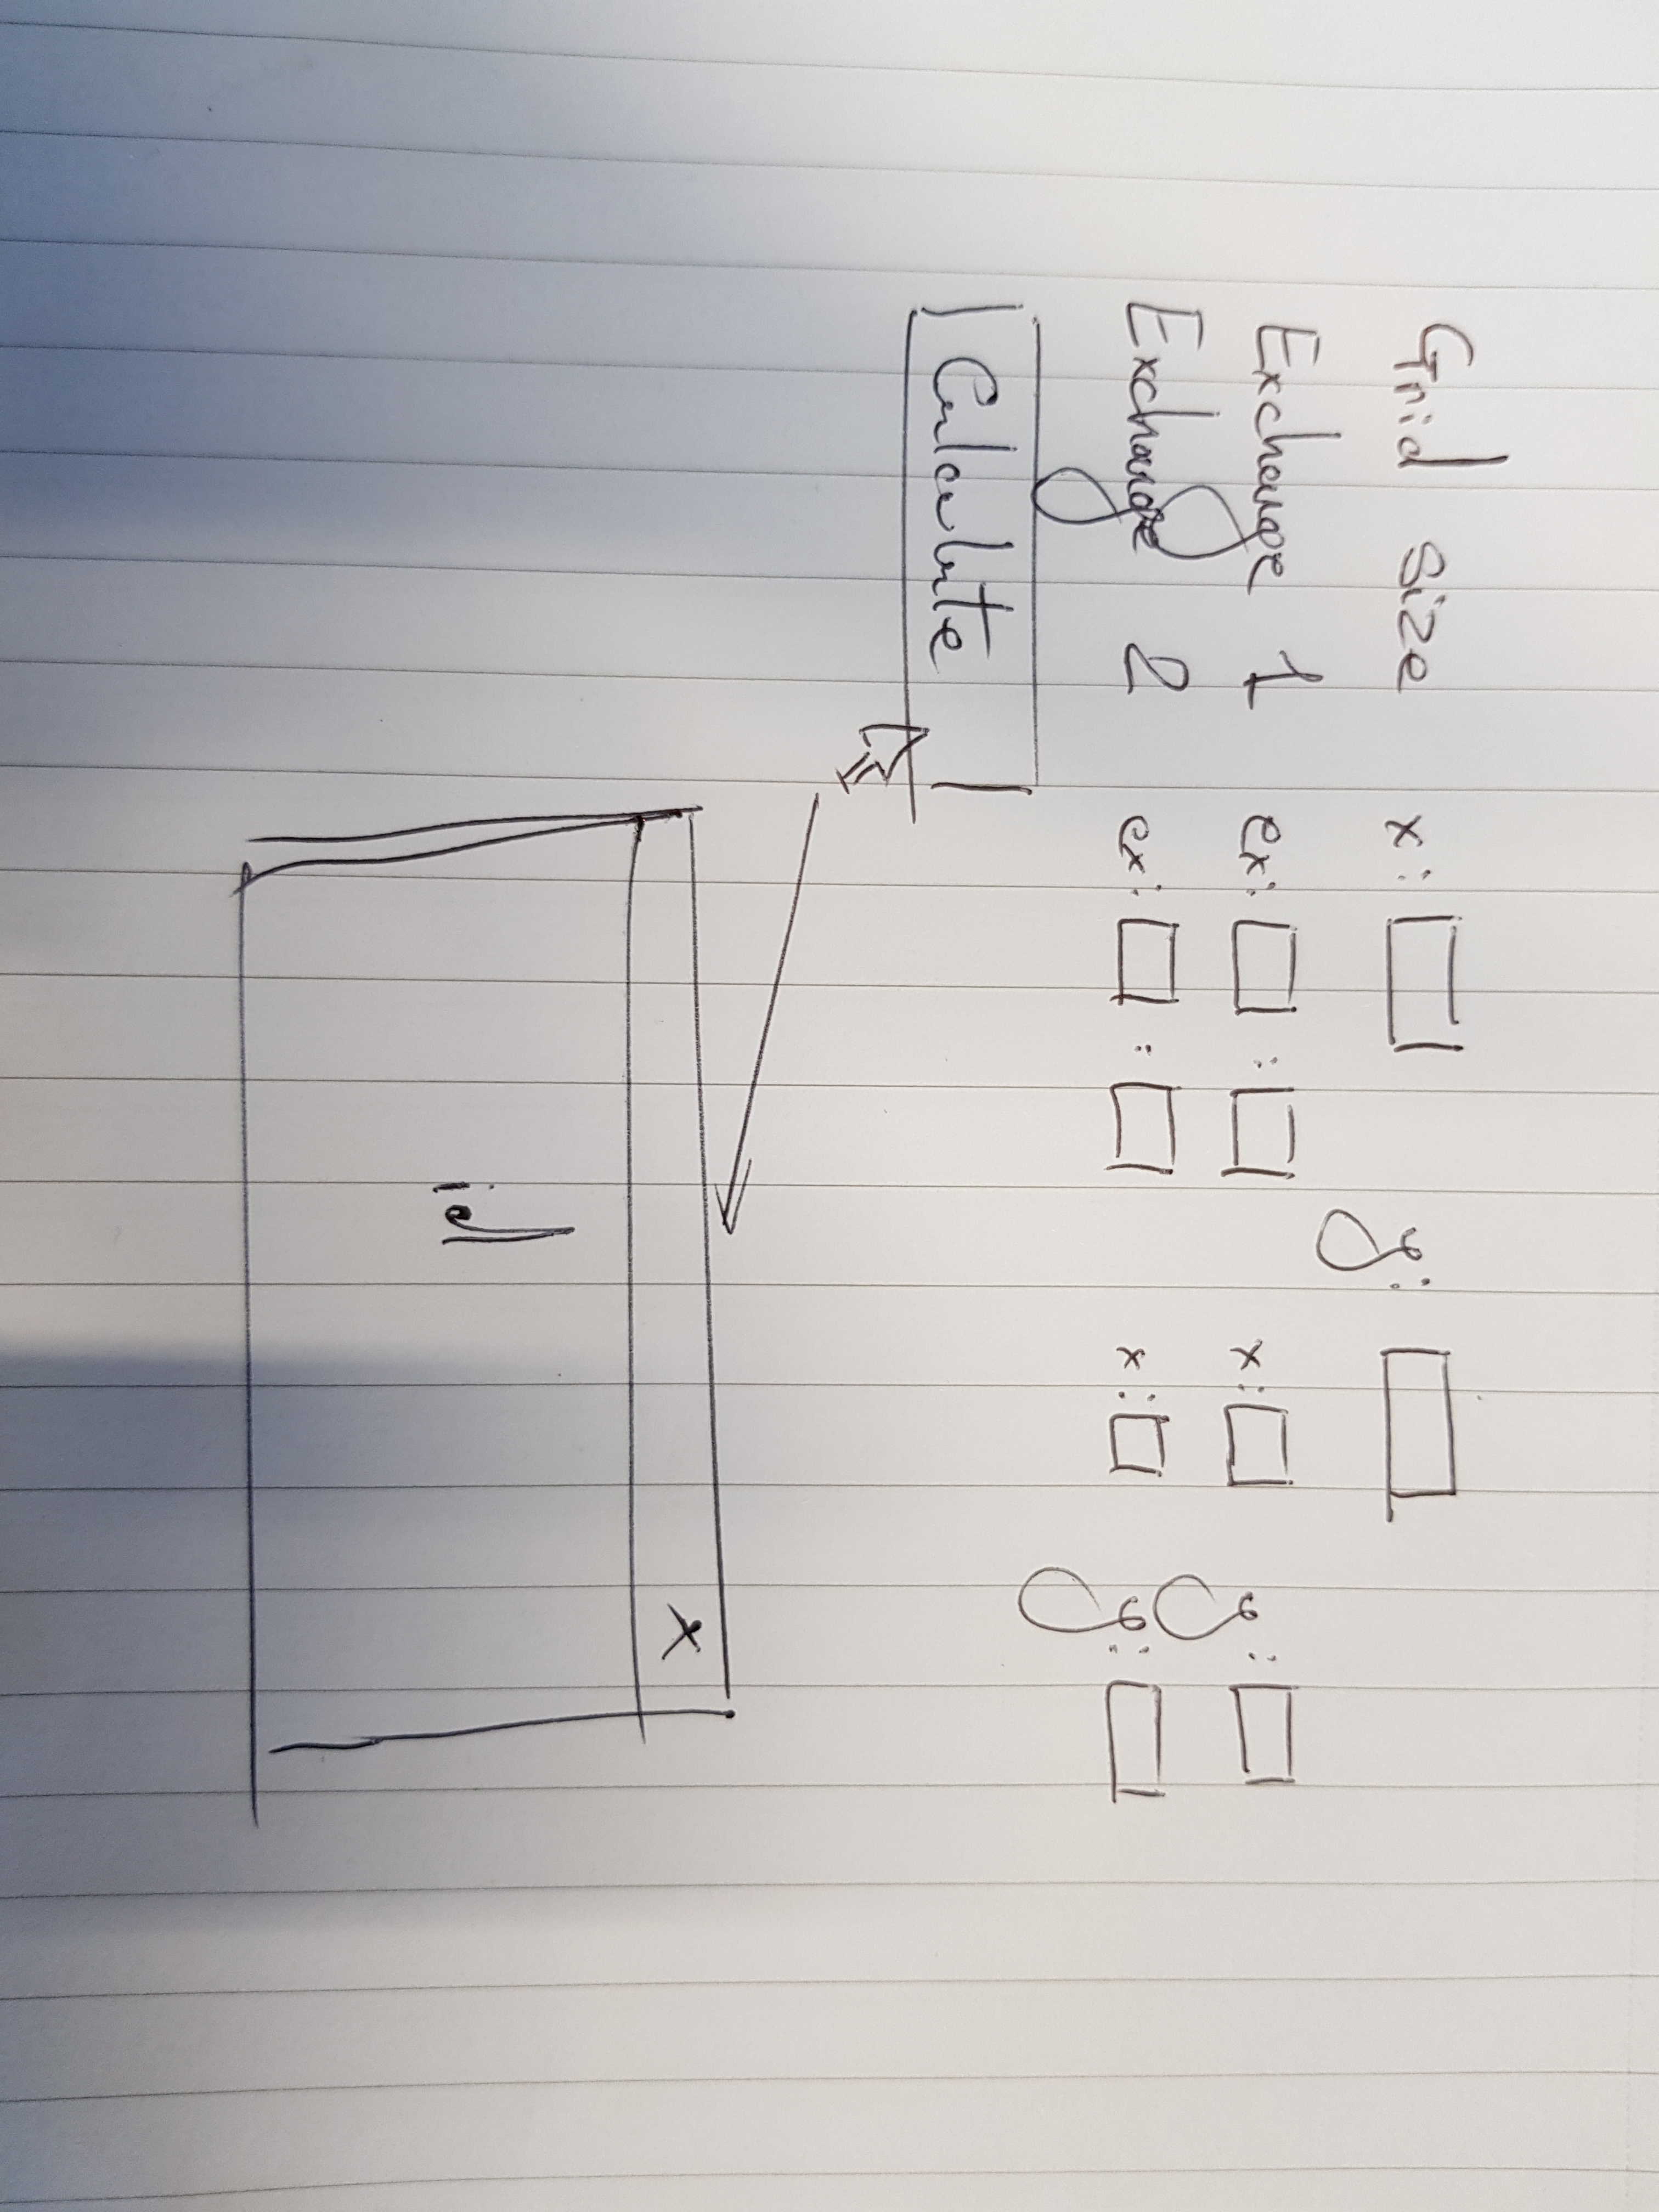 Grid size x: y:
Exchange 1 ex: : x: y:
Exchange 2 ex: : x: y:
Calculate
x
id